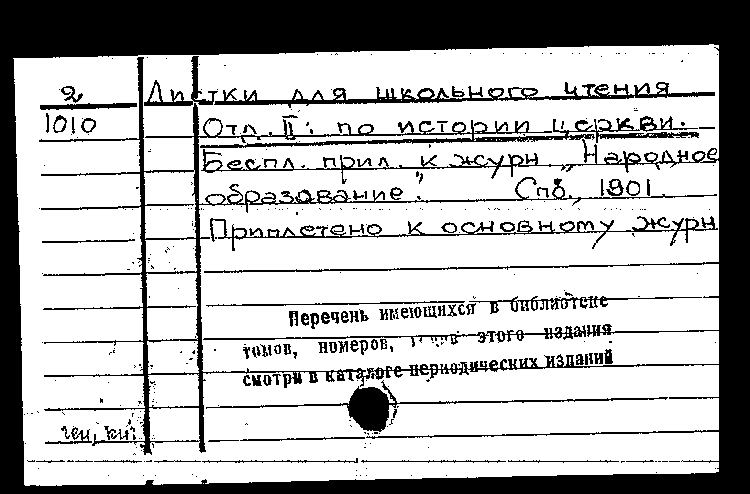 2 Листки для школьного чтения
1010 Отд. II: по истории церкви.
Беспл. прил. к журн. „Народное
образование". Спб., 1901.
Приплетено к основному журн
Перечень имеющихся в библиотеке
томов, номеров, этого издания
смотри в каталоге периодических изданий